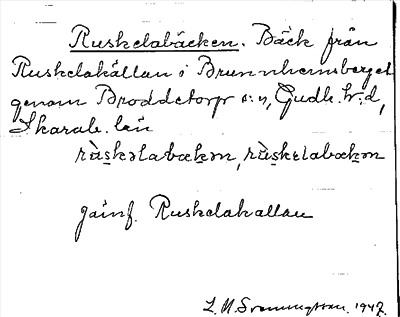 Ruskelabäcken. Bäck från
Ruskelakällan i Brunnhemsberget
genom Broddetorp s:n, Gudh. h:d,
Skarab. län
rùskəlabækən, rùskelabækən
jämf. Ruskelakällan
L. M. 1947.